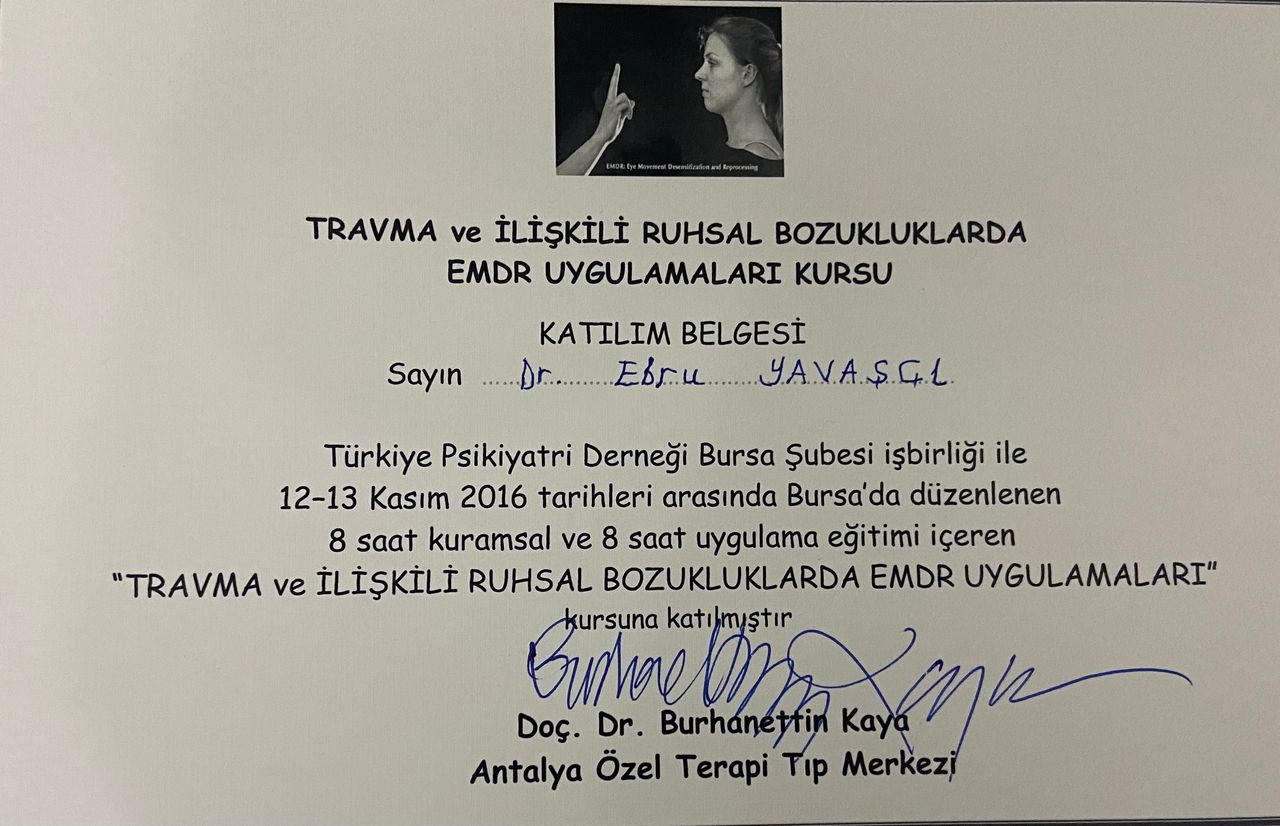 EMDR: Eye Movement Desensitization and Reprocessing
TRAVMA ve İLİŞKİLİ RUHSAL BOZUKLUKLARDA
EMDR UYGULAMALARI KURSU
KATILIM BELGESİ
Sayın Dr. Ebru YAVAŞÇI
Türkiye Psikiyatri Derneği Bursa Şubesi işbirliği ile
12-13 Kasım 2016 tarihleri arasında Bursa'da düzenlenen
8 saat kuramsal ve 8 saat uygulama eğitimi içeren
"TRAVMA ve İLİŞKİLİ RUHSAL BOZUKLUKLARDA EMDR UYGULAMALARI"
kursuna katılmıştır
Burhanettin Kaya
Doç. Dr. Burhanettin Kaya
Antalya Özel Terapi Tıp Merkezi